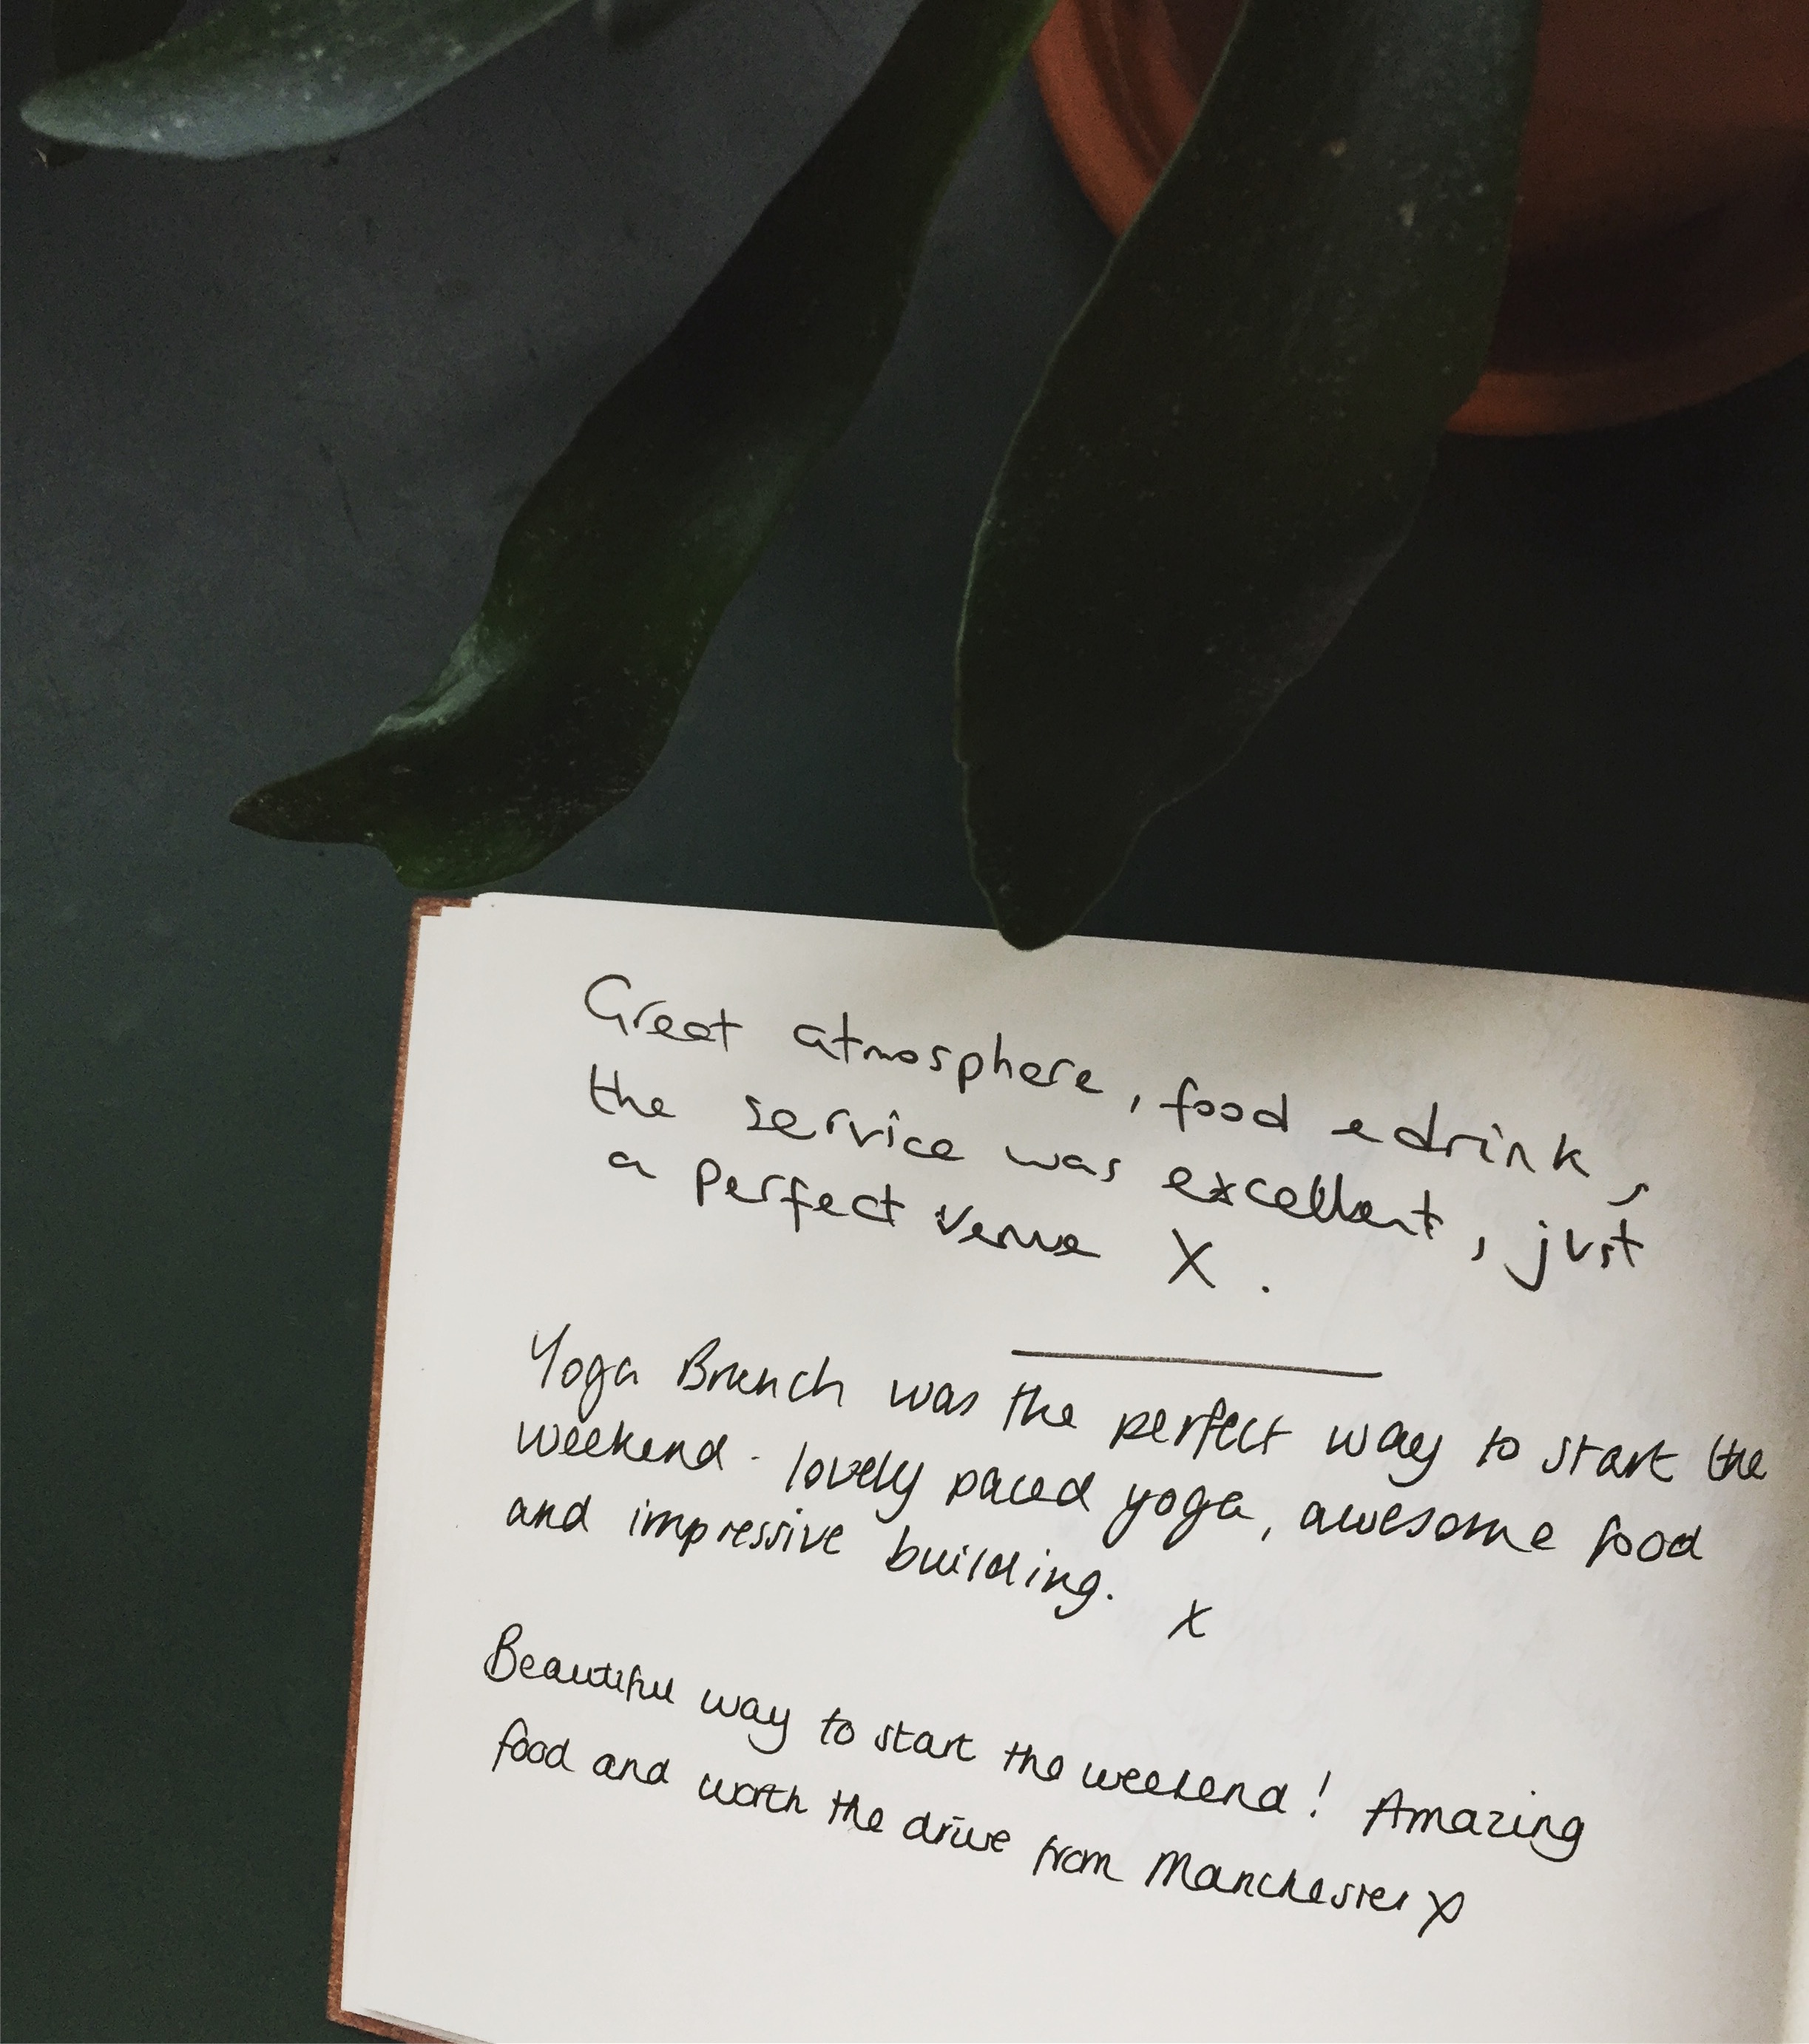 Great atmosphere, food e drink,
the service was excellent, just
a perfect venue X.
Yoga Brunch was the perfect way to start the
weekend - lovely paced yoga, awesome food
and impressive building. x
Beautiful way to start the weekend! Amazing
food and worth the drive from Manchester x